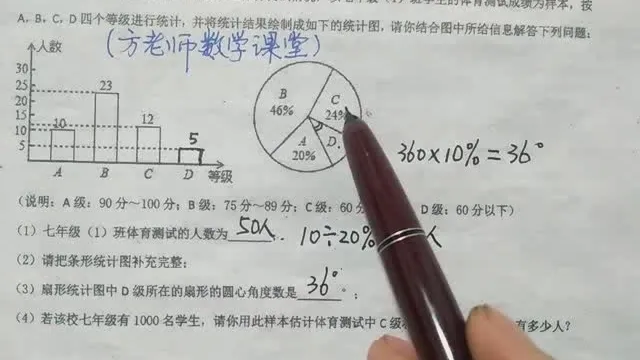 级（1）班学生的体育测试成绩为样本，按
A，B，C，D四个等级进行统计，并将统计结果绘制成如下的统计图，请你结合图中所给信息解答下列问题：
(方老师数学课堂)
人数
30
25
20
15
10
5
10
23
12
5
A B C D 等级
B
46%
C
24%
A
20%
D
360×10%=36°
（说明：A级：90分～100分；B级：75分～89分；C级：60分 D级：60分以下）
（1）七年级（1）班体育测试的人数为50人. 10÷20% 人
（2）请把条形统计图补充完整；
（3）扇形统计图中D级所在的扇形的圆心角度数是36°°；
（4）若该校七年级有1000名学生，请你用此样本估计体育测试中C级 有多少人？